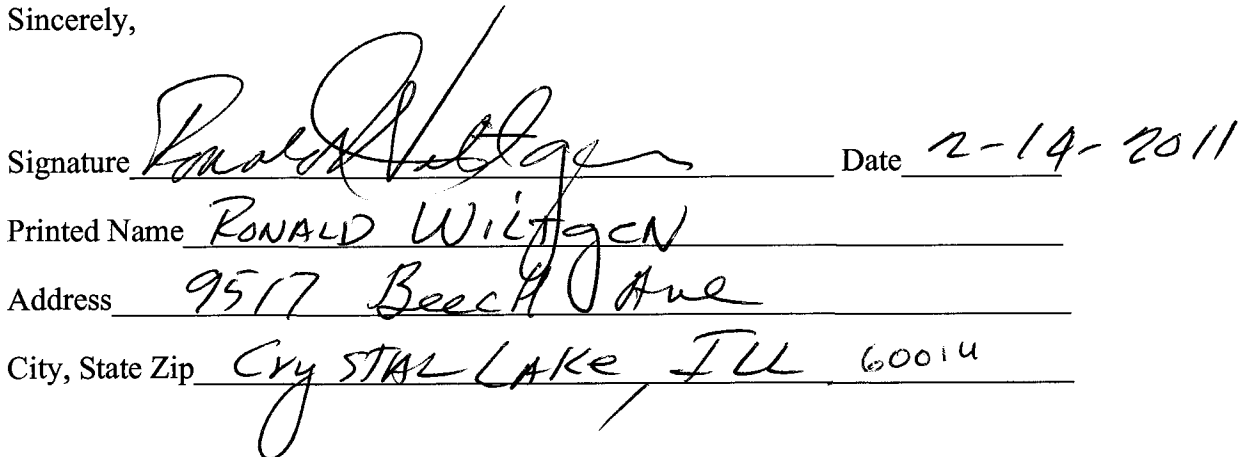 Sincerely,
Signature Ronald Wiltgen Date 2-14-2011
Printed Name RONALD WiltgeN
Address 9517 BeecH Ave
City, State Zip CrySTAL LAKe, ILL 60014